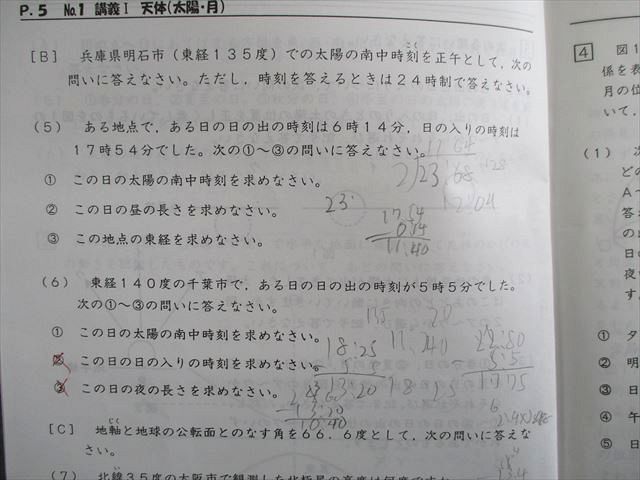 P.5 No.1 講義Ⅰ 天体(太陽・月)
[B] 兵庫県明石市(東経135度)での太陽の南中時刻を正午として,次の
問いに答えなさい。ただし,時刻を答えるときは24時制で答えなさい。
(5) ある地点で,ある日の日の出の時刻は6時14分,日の入りの時刻は
17時54分でした。次の①～③の問いに答えなさい。
① この日の太陽の南中時刻を求めなさい。
② この日の昼の長さを求めなさい。
③ この地点の東経を求めなさい。
23:
17.54
11.40
12.04
(6) 東経140度の千葉市で,ある日の日の出の時刻が5時5分でした。
次の①～③の問いに答えなさい。
① この日の太陽の南中時刻を求めなさい。
② この日の日の入りの時刻を求めなさい。
③ この日の夜の長さを求めなさい。
18:25
11.40
13.20
10.40
[C] 地軸と地球の公転面とのなす角を66.6度として,次の問いに答えな
さい。
(7) 北緯35度の大阪市で観測した北極星の高度は何度ですか
4 図1
係を表
月の位
いて,
(1) 次
どの
A～
答え
の出
日の
す。
① 夕
② 明
③ 日
④ 午
⑤ 日